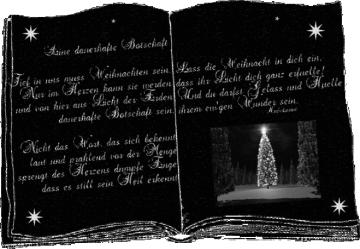 Eine dauerhafte Botschaft
Tief in uns muss Weihnachten sein
Nur im Herzen kann sie werden
und von hier aus Licht der Erden
dauerhafte Botschaft sein.
Nicht das Wort, das sich bekennt
laut und prahlend vor der Menge
sprengt des Herzens dumpfe Enge
dass es still sein Heil erkennt
Lass die Weihnacht in dich ein,
dass ihr Licht dich ganz erfuelle!
Und du darfst Gefass und Huelle
ihrem ew'gen Wunder sein.